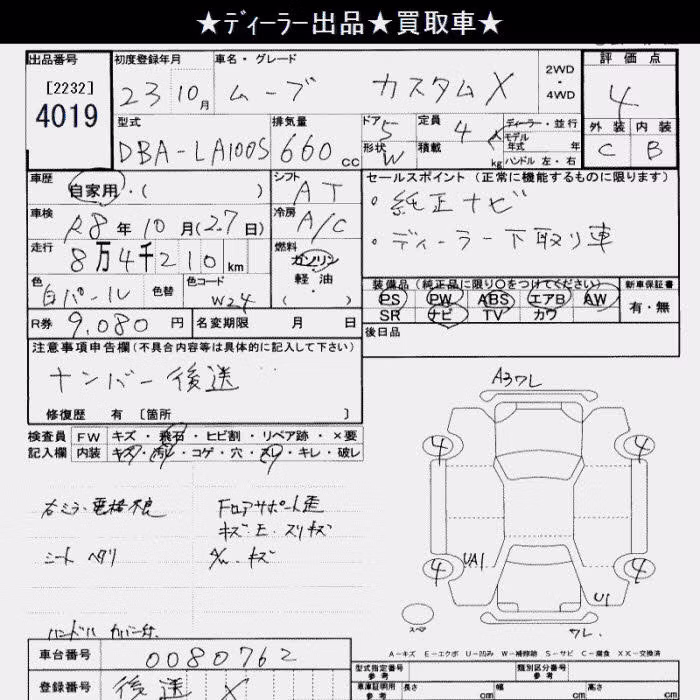 ★ディーラー出品★買取車★
出品番号 初度登録年月 車名・グレード 2WD・4WD 評価点
[2232]
4019
23 10月 ムーブ カスタムX 4
型式 排気量 ドア 5 定員 4 人 ディーラー・並行 外装 内装
DBA-LA100S 660cc 形状 W 積載 kg モデル年式 年 C B
ハンドル 左・右
車歴 自家用・( ) シフト AT セールスポイント(正常に機能するものに限ります)
車検 R8年10月(27日) 冷房 A/C ・純正ナビ
走行 8万4千210km 燃料 ガソリン ・ディーラー下取り車
軽油
・( )
色 白パール 色替 色コード W24 装備品(純正品に限り○をつけてください) 新車保証書
PS PW ABS エアB AW 有・無
SR ナビ TV カワ
R券 9,080円 名変期限 月 日 後日品
注意事項申告欄(不具合内容等は具体的に記入して下さい)
ナンバー後送
修復歴 有 [箇所 ]
検査員 FW キズ・飛石・ヒビ割・リペア跡・×要
記入欄 内装 キズ・汚レ・コゲ・穴・スレ・キレ・破レ
A3ワレ
4 4
右ミラー電格不良 Fロアサポート歪
キズ・E・スリキズ
シート ヘタリ A/W キズ
4 UA1 4
U1
スペア
ハンドル カバー付 ワレ
A-キズ E-エクボ U-凹み W-補修跡 S-サビ C-腐食 XX-交換済
車台番号 0080762 型式指定番号 参考 類別区分番号 参考
登録番号 後送 X 車庫証明用 参考 長さ cm 幅 cm 高さ cm